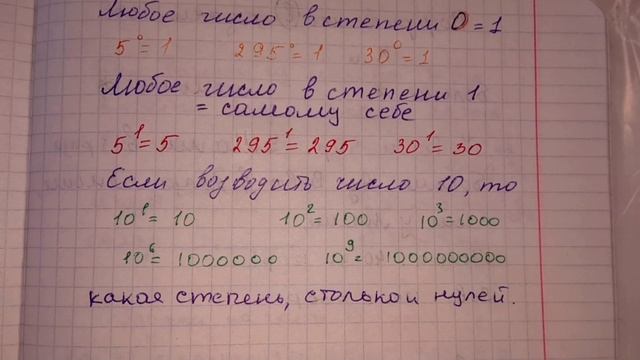 Любое число в степени 0 = 1
5⁰ = 1 295⁰ = 1 30⁰ = 1
Любое число в степени 1
= самому себе
5¹ = 5 295¹ = 295 30¹ = 30
Если возводить число 10, то
10¹ = 10 10² = 100 10³ = 1000
10⁶ = 1000000 10⁹ = 1000000000
какая степень, столько и нулей.